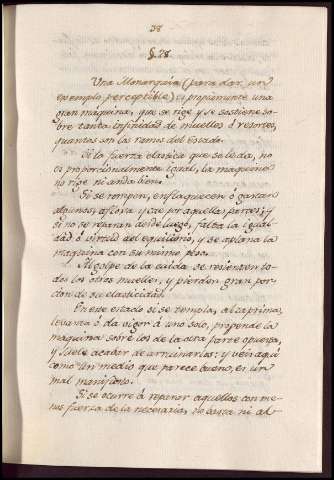 38
§. 28.
Una Monarquia (para dar un
exemplo perceptible) es propiamente una
gran maquina, que se rige y se sostiene so-
bre tanta infinidad de muelles ó resortes,
quantos son los ramos del Estado.
Si la fuerza elastica que se le da, no
es proporcionalmente igual, la maquina
no rige ni anda bien.
Si se rompen, enflaquecen ó gastan
algunos, afloxa y cae por aquella parte; y
si no se reparan desde luego, falta la igual-
dad ó virtud del equilibrio, y se aplana la
maquina con su mismo peso.
Al golpe de la caida se resienten to-
dos los otros muelles, y pierden gran por-
cion de su elasticidad.
En este estado si se templa, al
levanta ó da vigor á uno solo, propende la
maquina sobre los de la otra parte opuesta,
y suele acabar de arruinarlos: y veis aqui
como un medio que parece bueno, es un
mal manifiesto.
Si se ocurre á reponer aquellos con me-
nos fuerza de la necesaria, no basta ni al-